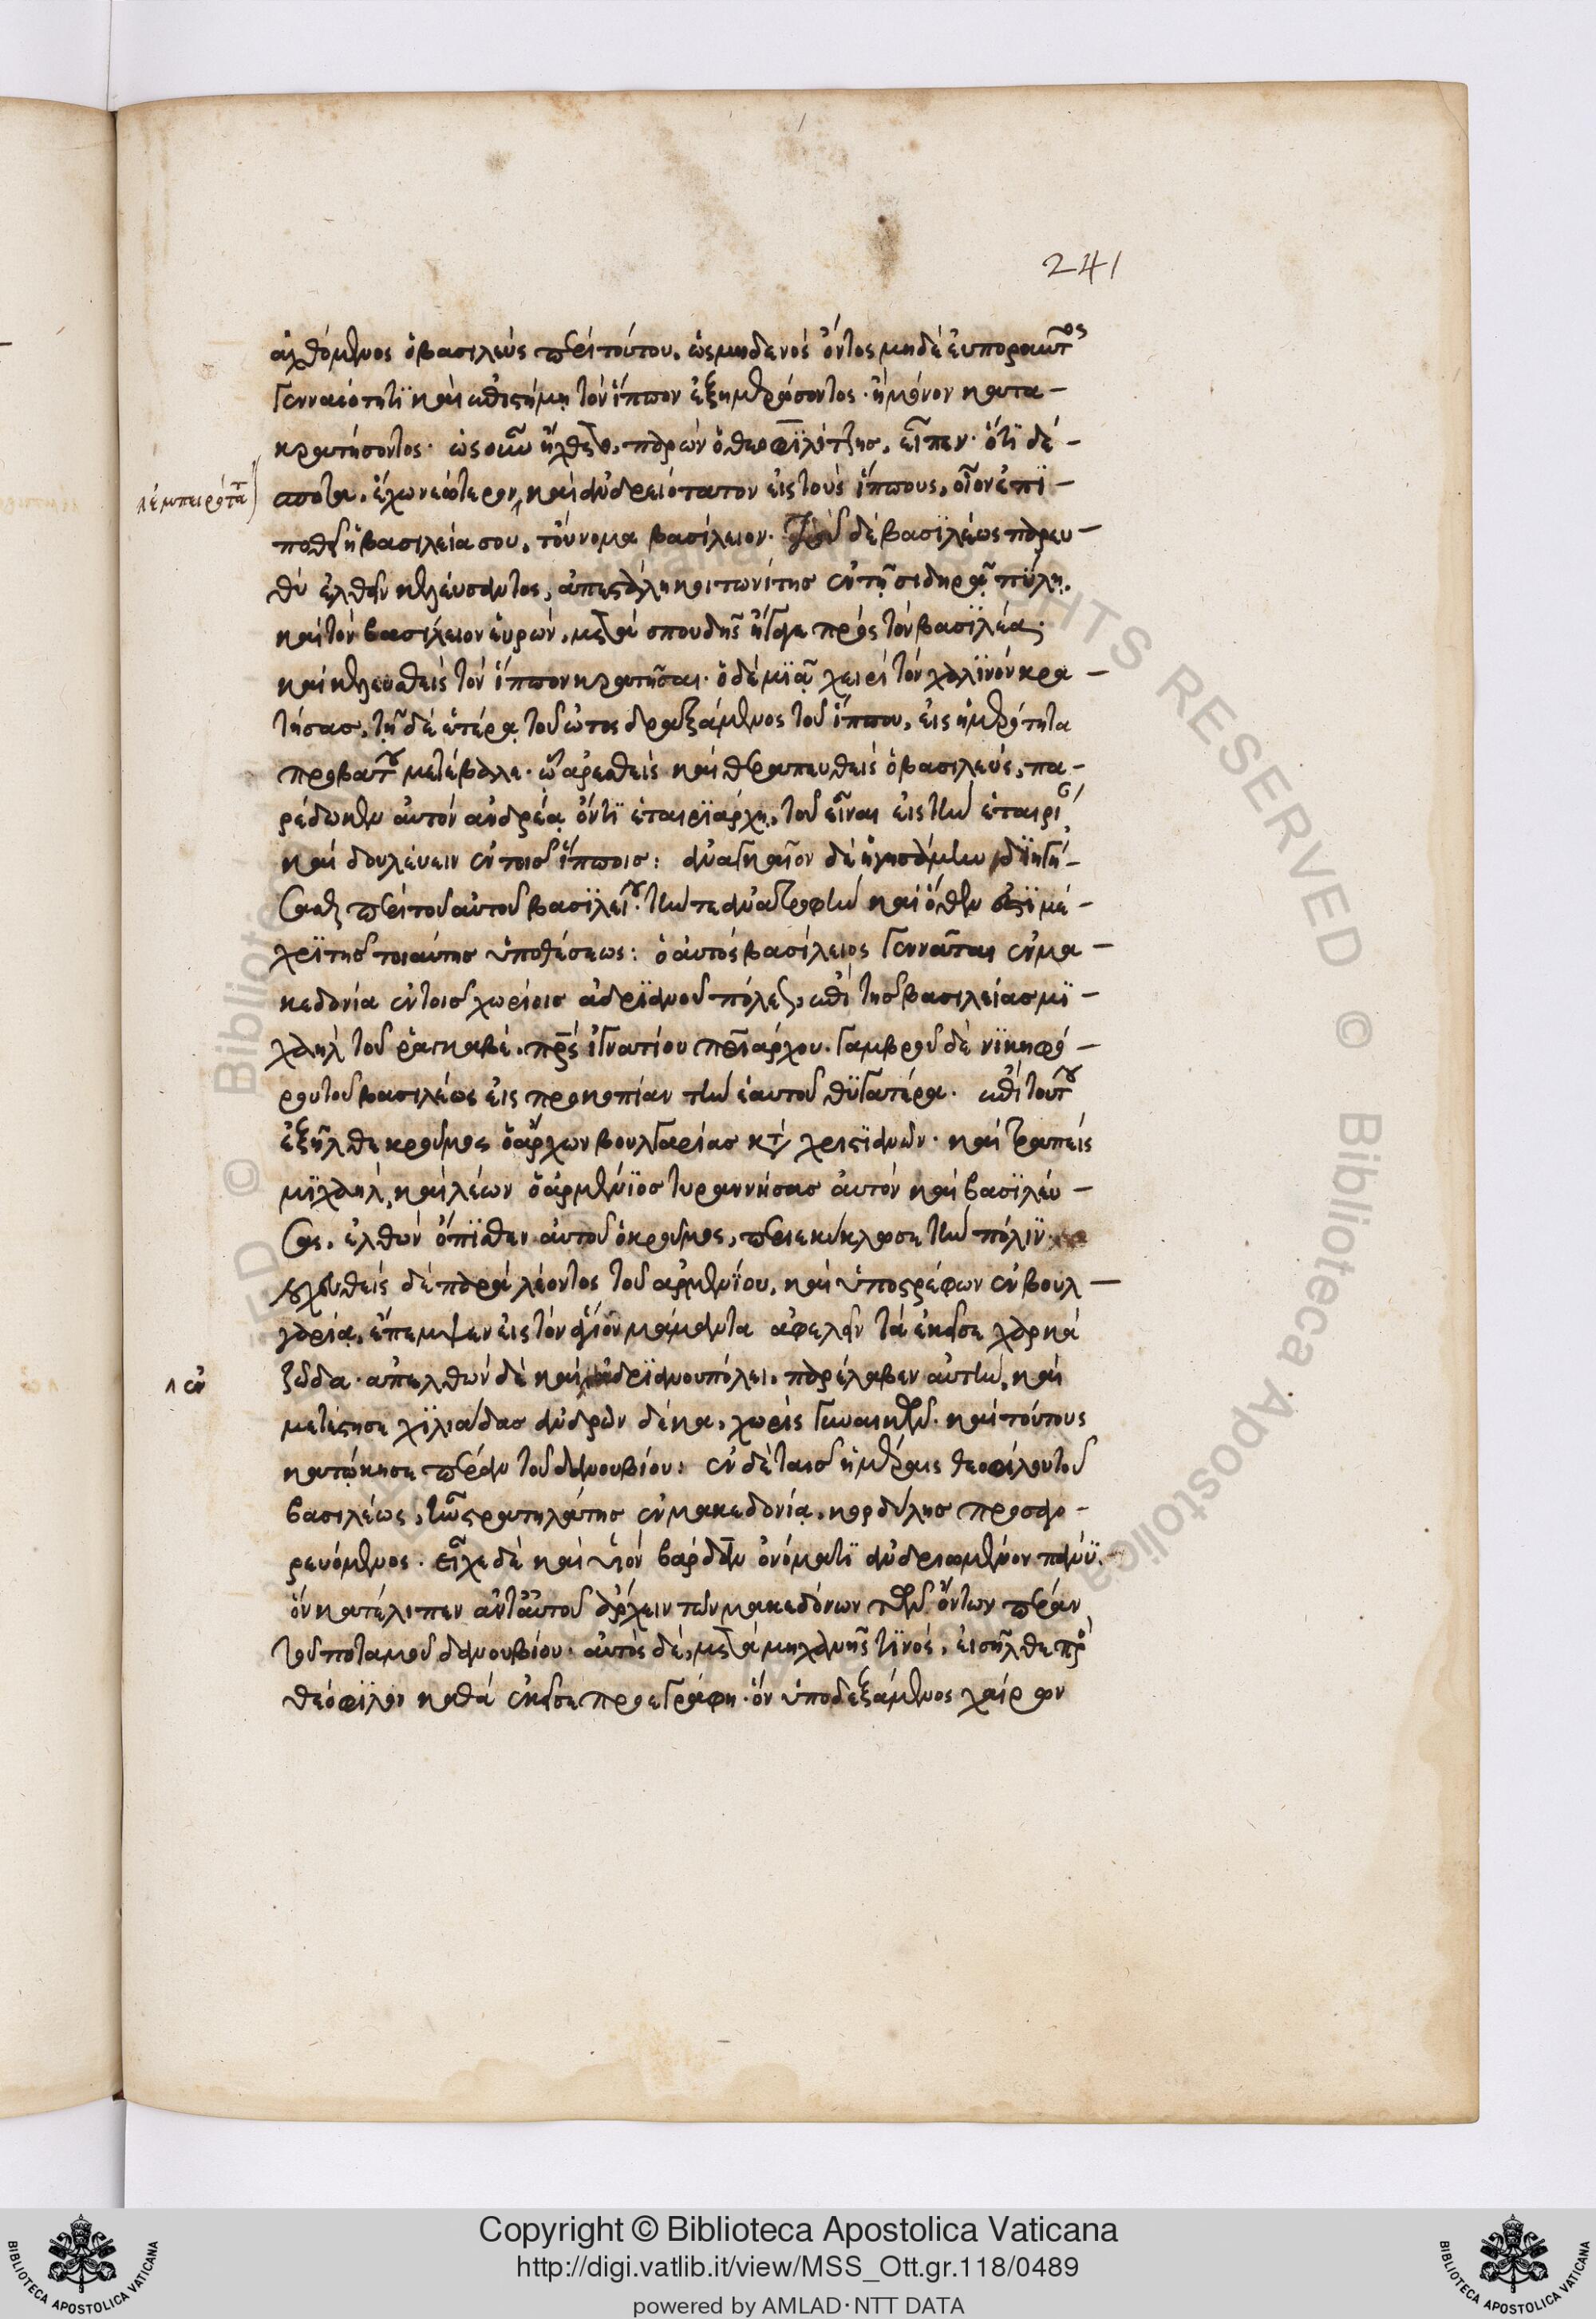 241
ἀχθόμενος ὁ βασιλεὺς περὶ τούτου, ὡς μηδενὸς ὄντος μηδὲ εὐποροῦντος
γενναιότητι καὶ ἐπιστήμῃ τὸν ἵππον ἐξημερώσοντος· ἢ μόνον κατα-
κρατήσοντος· ὡς οὖν ἦλθε παρὼν ὁ θεοφιλίτζης, εἶπεν· ὅτι δέ-
σποτα, ἔχω νεώτερον, καὶ ἀνδρειότατον εἰς τοὺς ἵππους, οἷον ἐπι-
λέμπειρότατον
ποθεῖ ἡ βασιλεία σου, τοὔνομα βασίλειον· τοῦ δὲ βασιλέως παρευ-
θὺ ἐλθεῖν κελεύσαντος, ἀπεστάλη κοιτωνίτης ἐν τῇ σιδηρᾷ πύλῃ.
καὶ τὸν βασίλειον εὑρὼν, μετὰ σπουδῆς ἤγαγε πρὸς τὸν βασιλέα·
καὶ κελευσθεὶς τὸν ἵππον κρατῆσαι· ὁ δὲ μιᾷ χειρὶ τὸν χαλινὸν κρα-
τήσας, τῇ δὲ ἑτέρᾳ τοῦ ὠτὸς δραξάμενος τοῦ ἵππου, εἰς ἡμερότητα
προβάτου μετέβαλε· ᾧ ἀρεσθεὶς καὶ θεραπευθεὶς ὁ βασιλεὺς, πα-
ρέδωκεν αὐτὸν ἀνδρέᾳ ὄντι ἑταιριάρχῃ, τοῦ εἶναι εἰς τὴν ἑταιρί
καὶ δουλεύειν ἐν τοῖς ἵπποις: ἀναγκαῖον δὲ ἡγησάμην διηγή-
σασθαι περὶ τοῦ αὐτοῦ βασιλείου· τήν τε ἀναστροφὴν καὶ ὅθεν ἐστὶ μέ-
χρι τῆς τοιαύτης ὑποθέσεως: ὁ αὐτὸς βασίλειος γεννᾶται ἐν μα-
κεδονία ἐν τοῖς χωρίοις ἀδριανοῦ πόλεως, ἐπὶ τῆς βασιλείας μι-
χαὴλ τοῦ ῥαγκαβὲ, πρς ἰγνατίου πριάρχου. γαμβροῦ δὲ νικηφό-
ρου τοῦ βασιλέως εἰς προκοπίαν τὴν ἑαυτοῦ θυγατέρα· ἐπὶ τούτου
ἐξῆλθε κροῦμος ὁ ἄρχων βουλγαρίας κατὰ χριστιανῶν· καὶ τραπεὶς
μιχαὴλ, καὶ λέων ὁ ἀρμένιος τυραννήσας αὐτὸν καὶ βασιλεύ-
σας, ἐλθὼν ὄπισθεν αὐτοῦ ὁ κροῦμος, περιεκύκλωσε τὴν πόλιν
δὲ παρὰ λέοντος τοῦ ἀρμενίου, καὶ ὑποστρέφων ἐν βουλ-
γαρία, ἔπεμψεν εἰς τὸν ἅγιον μάμαντα ἀφελεῖν τὰ ἐκεῖσε χαλκᾶ
ζώδα· ἀπελθὼν δὲ καὶ ἀδριανουπόλει, παρέλαβεν αὐτὴν, καὶ
λ ἐν
μετέστησε χιλιάδας ἀνδρῶν δέκα, χωρὶς γυναικῶν· καὶ τούτους
κατῴκησε πέραν τοῦ δανουβίου: ἐν δὲ ταῖς ἡμέραις θεοφίλου τοῦ
βασιλέως, ἦν στρατηλάτης ἐν μακεδονία, κορδύλης προσαγο-
ρευόμενος· εἶχε δὲ καὶ υἱὸν βάρδαν ὀνόματι ἀνδρειωμένον πάνυ.
ὃν κατέλιπεν ἀντ᾽ αὐτοῦ ἄρχειν τῶν μακεδόνων τῶν ὄντων πέραν
τοῦ ποταμοῦ δανουβίου· αὐτὸς δὲ, μετὰ μηχανῆς τινὸς, εἰσῆλθε πρὸς
θεόφιλον καθὰ ἐκεῖσε προεγράφη· ὃν ὑποδεξάμενος χαίρων
Copyright © Biblioteca Apostolica Vaticana
http://digi.vatlib.it/view/MSS_Ott.gr.118/0489
powered by AMLAD·NTT DATA